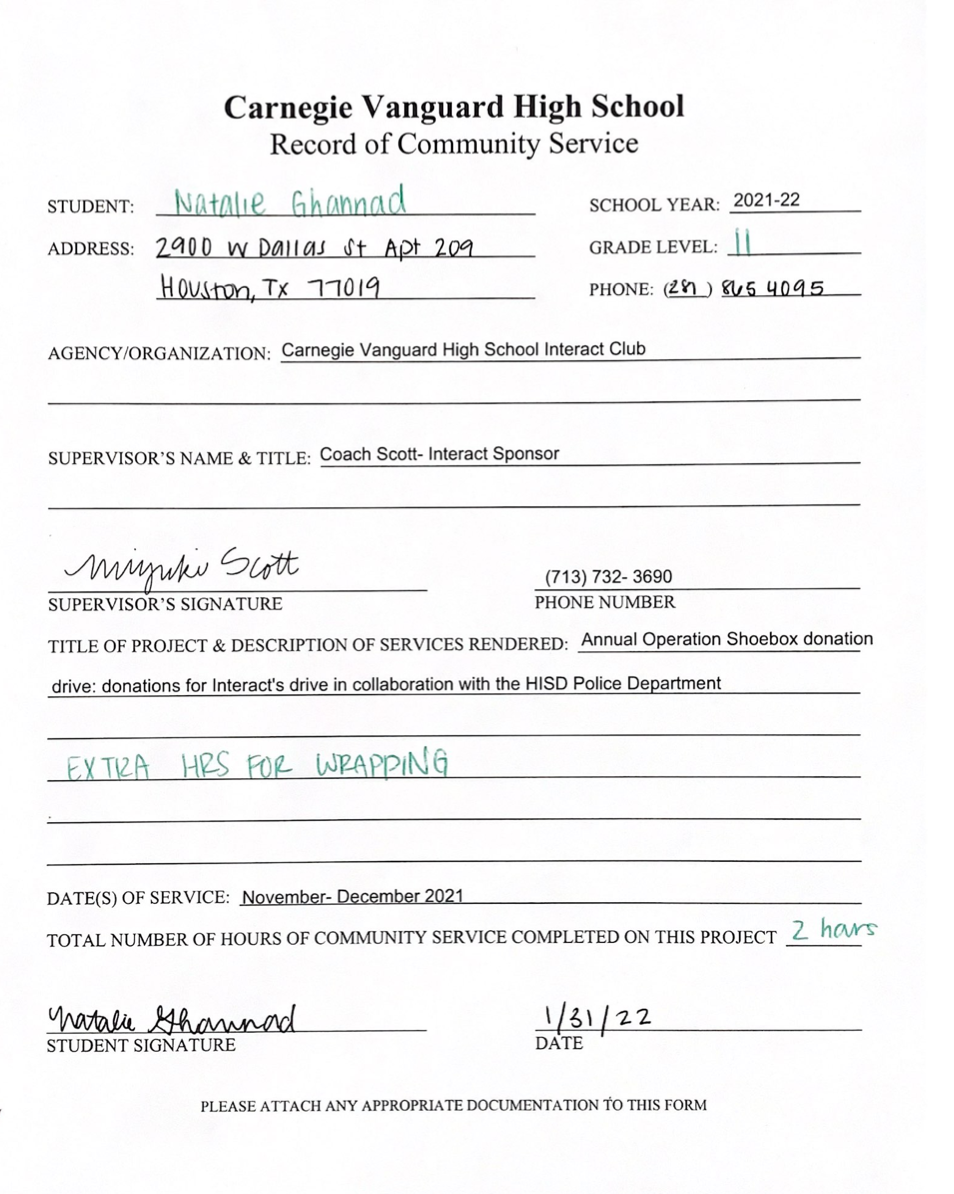 Carnegie Vanguard High School
Record of Community Service
STUDENT: Natalie Ghannad SCHOOL YEAR: 2021-22
ADDRESS: 2900 W Dallas St Apt 209 GRADE LEVEL: 11
Houston, TX 77019 PHONE: (281) 865 4095
AGENCY/ORGANIZATION: Carnegie Vanguard High School Interact Club
SUPERVISOR'S NAME & TITLE: Coach Scott- Interact Sponsor
Miyuki Scott (713) 732- 3690
SUPERVISOR'S SIGNATURE PHONE NUMBER
TITLE OF PROJECT & DESCRIPTION OF SERVICES RENDERED: Annual Operation Shoebox donation
drive: donations for Interact's drive in collaboration with the HISD Police Department
EXTRA HRS FOR WRAPPING
DATE(S) OF SERVICE: November- December 2021
TOTAL NUMBER OF HOURS OF COMMUNITY SERVICE COMPLETED ON THIS PROJECT 2 hours
Natalie Ghannad 1/31/22
STUDENT SIGNATURE DATE
PLEASE ATTACH ANY APPROPRIATE DOCUMENTATION TO THIS FORM